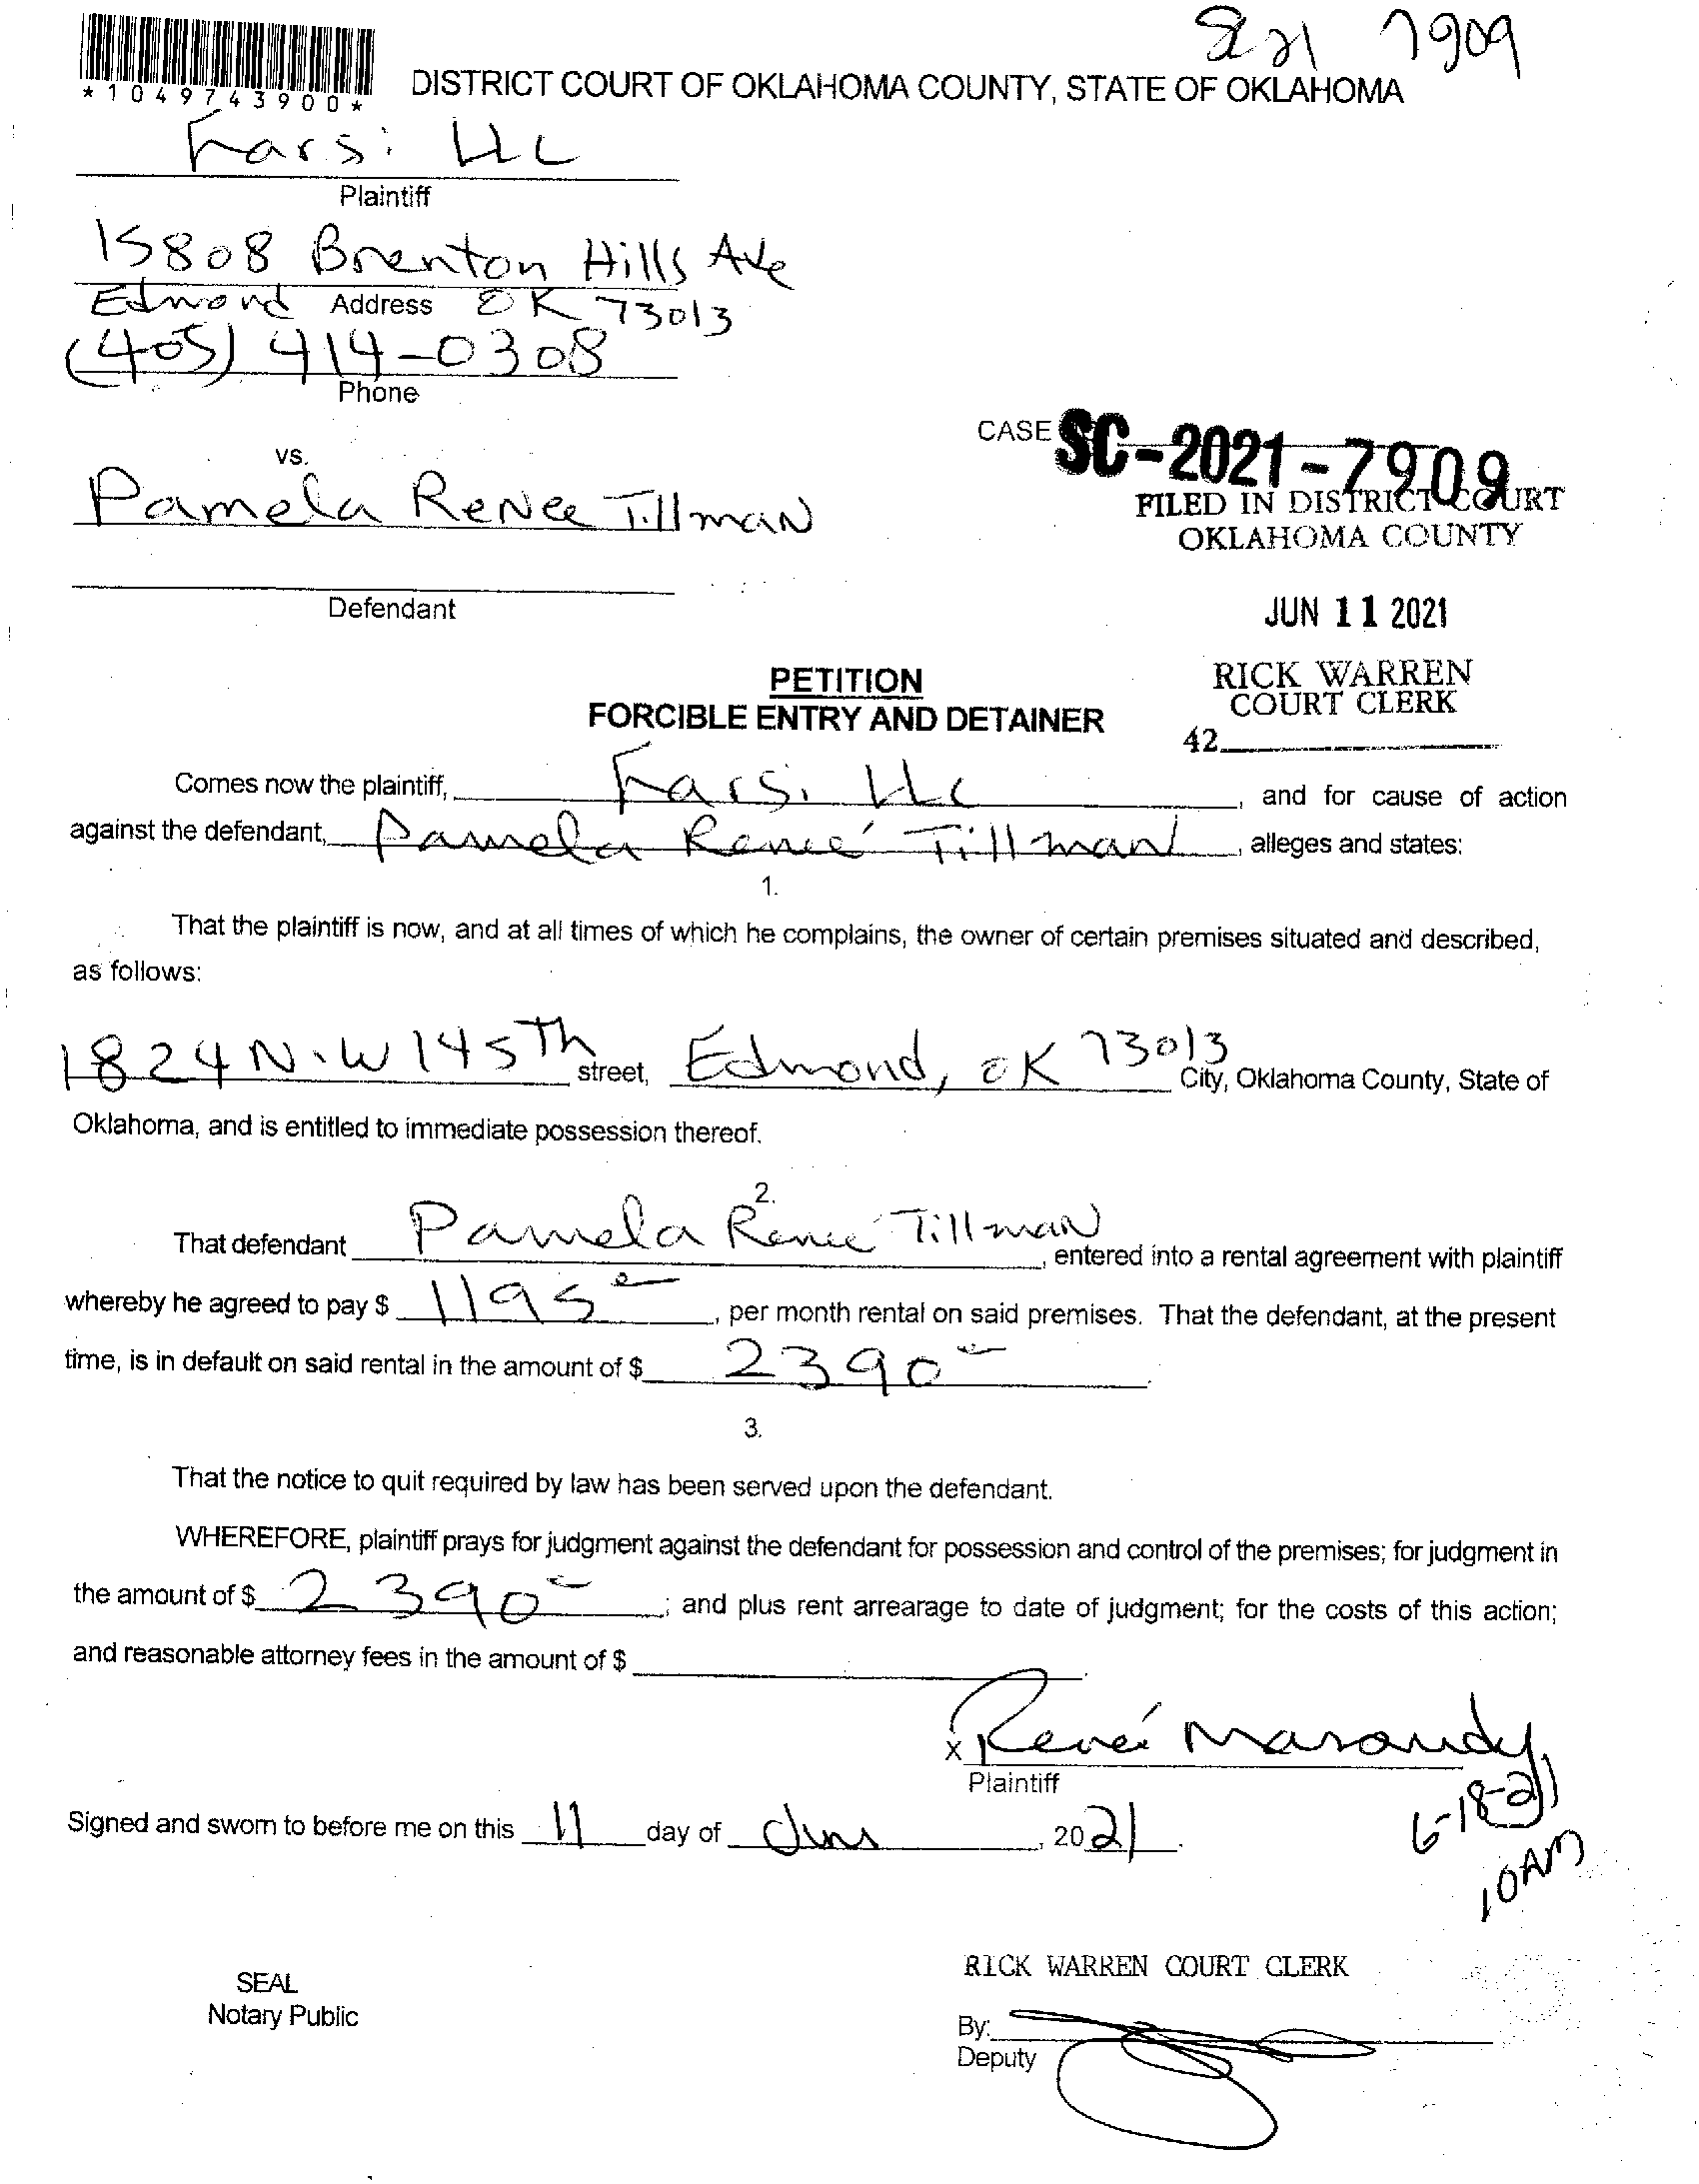 SC 21 7909
*1049743900*
DISTRICT COURT OF OKLAHOMA COUNTY, STATE OF OKLAHOMA
Farsi LLC
Plaintiff
15808 Brenton Hills Ave
Edmond Address OK 73013
(405) 414-0308
Phone
CASE SC-2021-7909
vs.
Pamela Renee Tillman
FILED IN DISTRICT COURT
OKLAHOMA COUNTY
Defendant
JUN 11 2021
PETITION
RICK WARREN
COURT CLERK
FORCIBLE ENTRY AND DETAINER
42
Comes now the plaintiff, Farsi LLC, and for cause of action
against the defendant, Pamela Reneé Tillman, alleges and states:
1.
That the plaintiff is now, and at all times of which he complains, the owner of certain premises situated and described,
as follows:
1824 N.W 145Th street, Edmond, OK 73013 City, Oklahoma County, State of
Oklahoma, and is entitled to immediate possession thereof.
2.
That defendant Pamela Reneé Tillman, entered into a rental agreement with plaintiff
whereby he agreed to pay $ 1195, per month rental on said premises. That the defendant, at the present
time, is in default on said rental in the amount of $ 2390.
3.
That the notice to quit required by law has been served upon the defendant.
WHEREFORE, plaintiff prays for judgment against the defendant for possession and control of the premises; for judgment in
the amount of $ 2390; and plus rent arrearage to date of judgment; for the costs of this action;
and reasonable attorney fees in the amount of $
x Reneé
Plaintiff
6-18-21
10AM
Signed and sworn to before me on this 11 day of June, 2021.
RICK WARREN COURT CLERK
SEAL
Notary Public
By:
Deputy